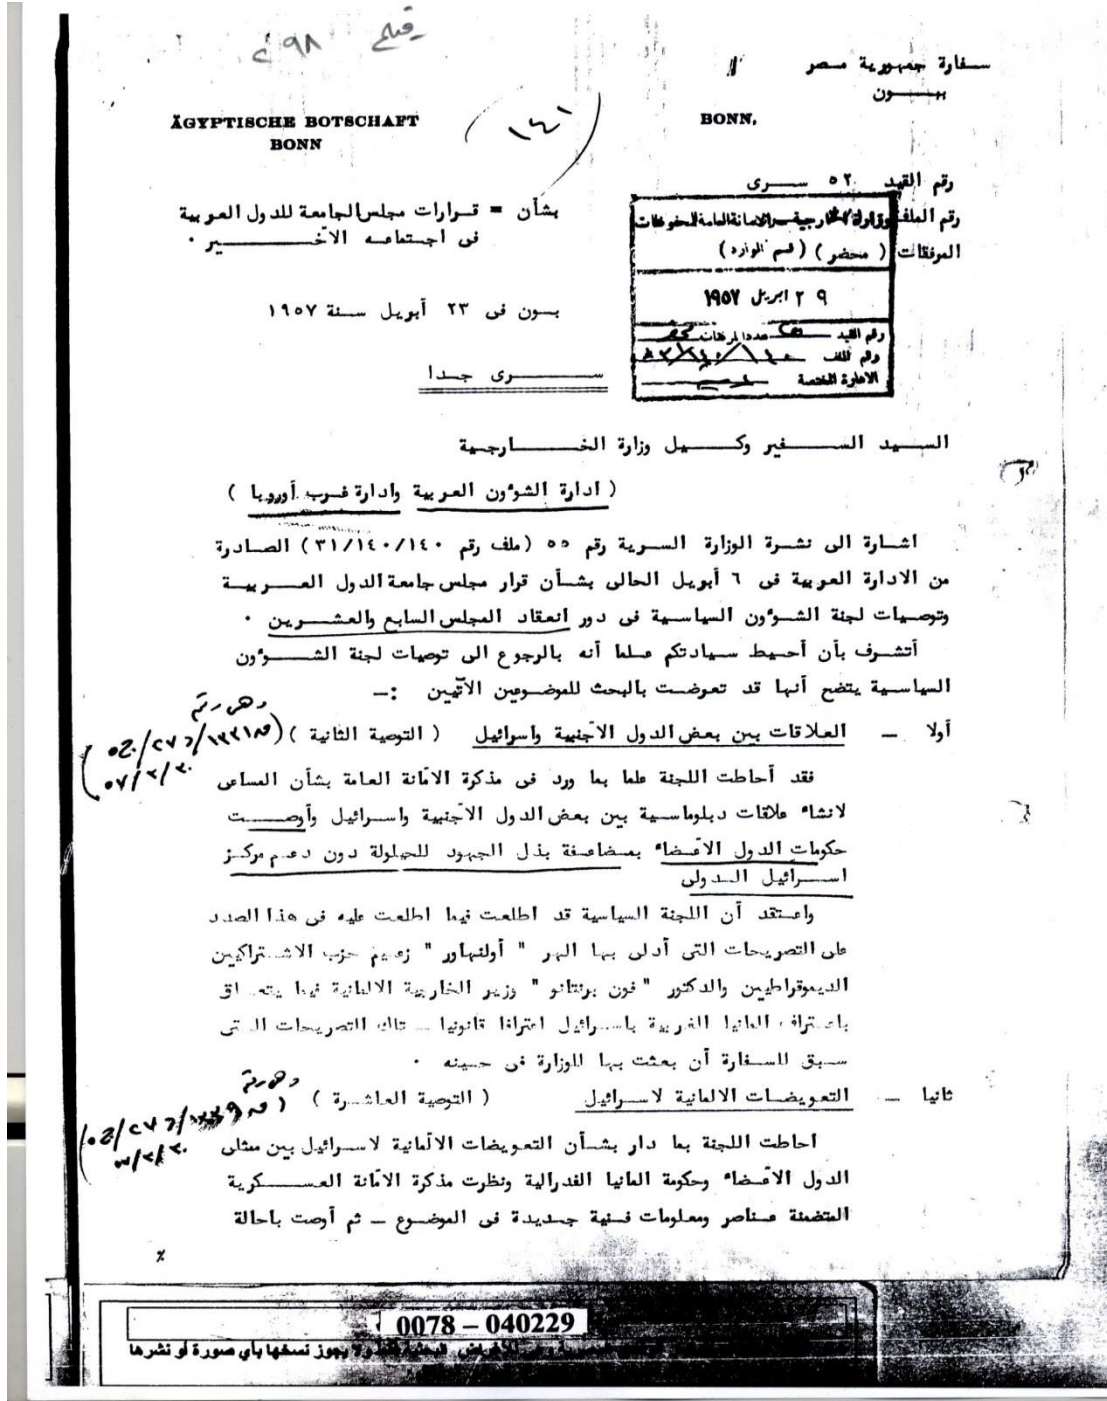 سفارة جمهورية مصر
بـــون
ÄGYPTISCHE BOTSCHAFT
BONN
BONN,
(١٤١)
رقم القيد ٥٢ ســـرى
رقم الملف
المرفقات ( محضر ) ( قسم الوارد )
٢٩ ابريل ١٩٥٧
رقم القيد
عدد المرفقات
رقم الملف
الادارة المختصة
بشأن = قرارات مجلس الجامعة للدول العربية
فى اجتماعه الأخـــير ٠
بـون فى ٢٣ أبريل سنة ١٩٥٧
ســـرى جـدا
السـيد الســـفير وكـــيل وزارة الخـــارجية
( ادارة الشؤون العربية وادارة غرب أوروبا )
اشـارة الى نشرة الوزارة السـرية رقم ٥٥ (ملف رقم ٣١/١٤٠/١٤٠) الصـادرة
من الادارة العربية فى ٦ أبريل الحالى بشـأن قرار مجلس جامعة الدول العـــربيـة
وتوصـيات لجنة الشـؤون السياسـية فى دور انعقاد المجلس السابع والعشـــرين ٠
أتشـرف بأن أحـيط سـيادتكم عـلما أنه بالرجوع الى توصيات لجنة الشـــؤون
السياسـية يتضح أنـها قد تعرضـت بالبحث للموضـوعين الآتيين :ـ
وهى رقم
أولا ـ العلاقات بين بعض الدول الأجنبية واسرائيل ( التوصية الثانية )
فقد أحاطت اللجنة علما بما ورد فى مذكرة الأمانة العامة بشأن المساعى
لانشاء علاقات دبلوماسـية بين بعض الدول الأجنبية واسـرائيل وأوصـــت
حكومات الدول الأعـضاء بمـضاعـفة بذل الجهود للحيلولة دون دعـم مركـز
اســـرائيل الـدولى
واعـتقد أن اللجنة السياسية قد اطلعت فيما اطلعت عليه فى هذا الصدد
على التصريحات التى أدلى بها الهر " أولنهاور " زعيم حزب الاشـتراكيين
الديموقراطيين والدكتور "فون برنتانو " وزير الخارجية الالمانية فيما يتعـلق
باعـتراف المانيا الغربية باسـرائيل اعترافا قانونيا ـ تلك التصريحات الـتى
سـبق للسـفارة أن بعثت بها للوزارة فى حـينه ٠
وهى رقم
ثانيا ـ التعويضـات الالمانية لاسـرائيل ( التوصية العاشـرة )
احاطت اللجنة بما دار بشـأن التعويضات الألمانية لاسـرائيل بين ممثلى
الدول الأعـضاء وحكومة المانيا الفدرالية ونظرت مذكرة الأمانة العســـكرية
المتضمنة عـناصر ومعلومات فـنية جـديدة فى الموضـوع ـ ثم أوصت باحالة
٪
0078 – 040229
يجوز نسخها بأي صورة أو نشرها